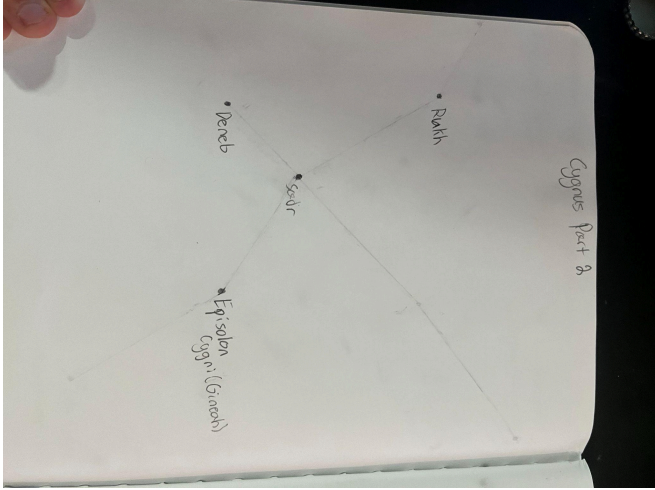 Cygnus Part 2
Rukh
Deneb
Sadr
Episolon
Cygni (Gineah)